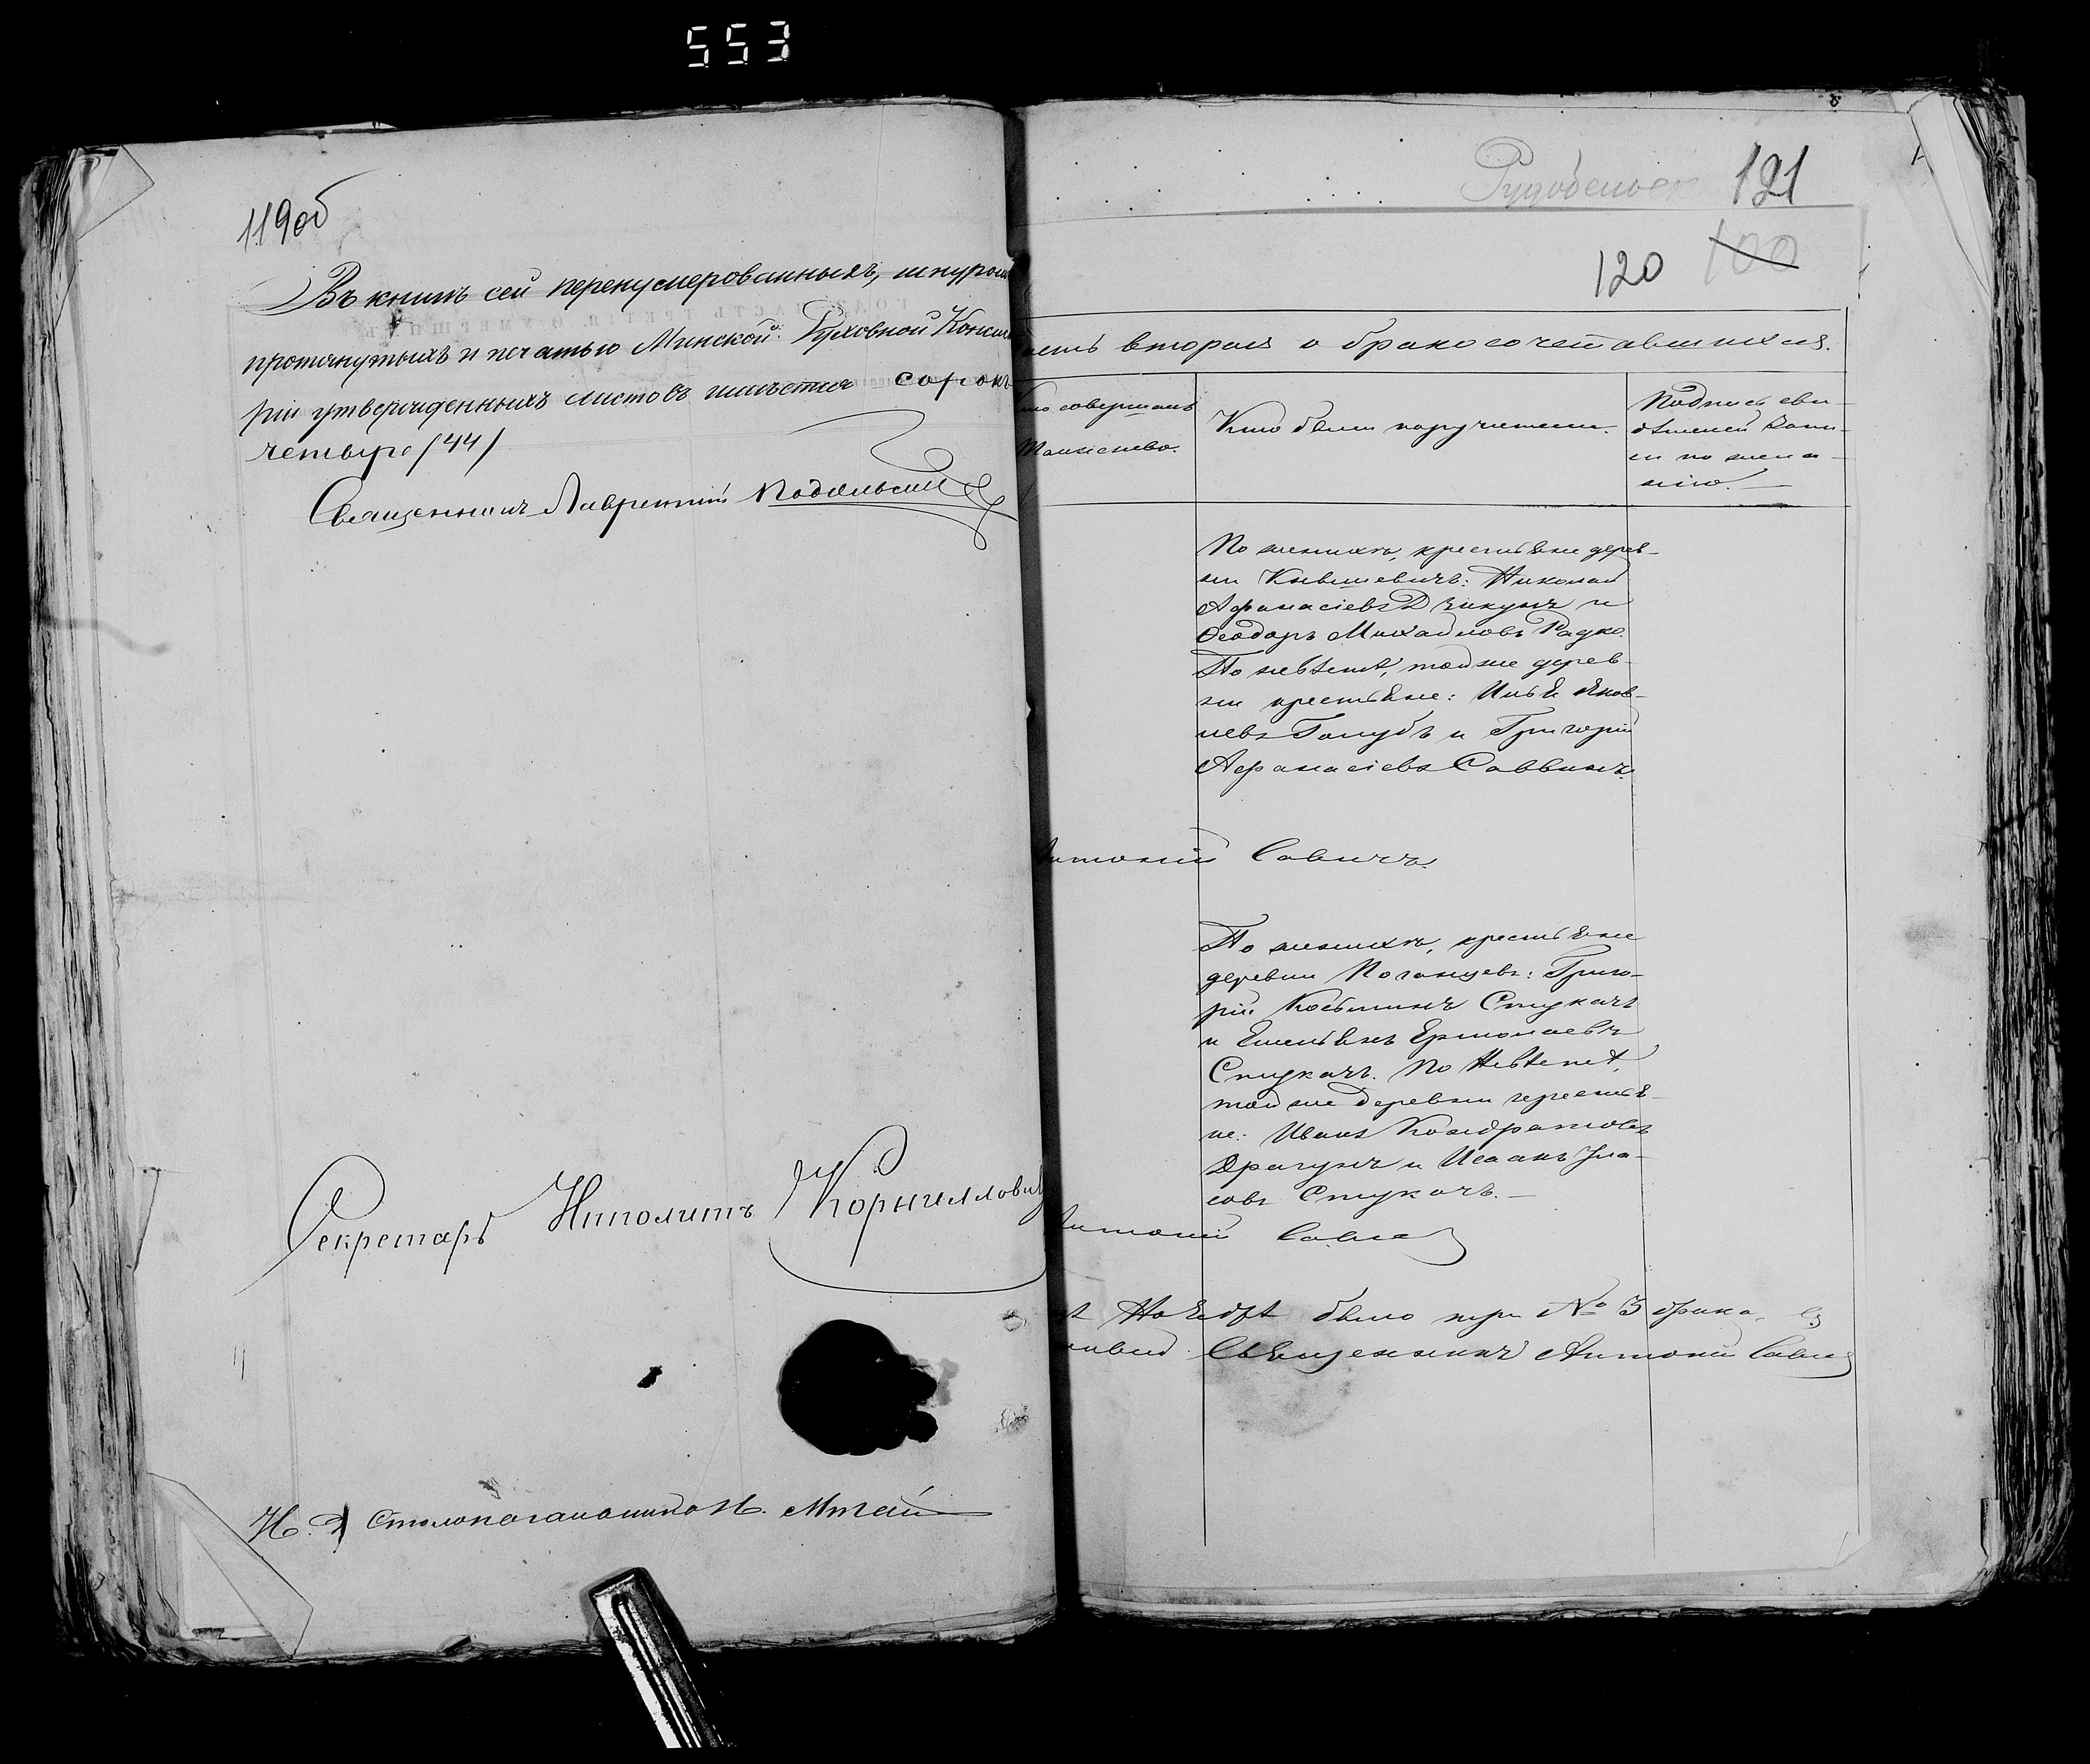 553
119об
Въ книгѣ сей перенумерованныхъ, шнуром
протянутыхъ и печатью Минской Духовной Консис
ріи утвержденныхъ листовъ имѣется сорокъ
четыре /44/
Священникъ Лаврентій Подольскій
Секретарь Иполитъ Корнилловичъ
И. Д. Столоначальника Н.
121
120 100
часть вторая о бракосочетавшихся.
совершалъ
Таинство.
Кто были поручители.
Подпись сви-
дѣтелей запи-
си по жела-
нію.
По женихѣ, крестьяне дерев-
ни Кнышевичъ: Николай
Афанасіевъ Дзикунъ и
Ѳеодоръ Михайловъ Радко.
По невѣстѣ, той же дерев-
ни крестьяне: Илья Яков-
левъ Голубъ и Григорій
Афанасіевъ Саввинъ.
Антоній Савичъ
По женихѣ, крестьяне
деревни Поганцевъ: Григо-
рій Козьминъ Стукачъ
и Емельянъ Ермолаевъ
Стукачъ. По Невѣстѣ,
той же деревни крестья-
не: Иванъ Кондратовъ
Драгунъ и Исаакъ Ула-
совъ Стукачъ.
Антоній Савич
Ноябрѣ было три № 3 брака.
Священникъ Антоній Савич